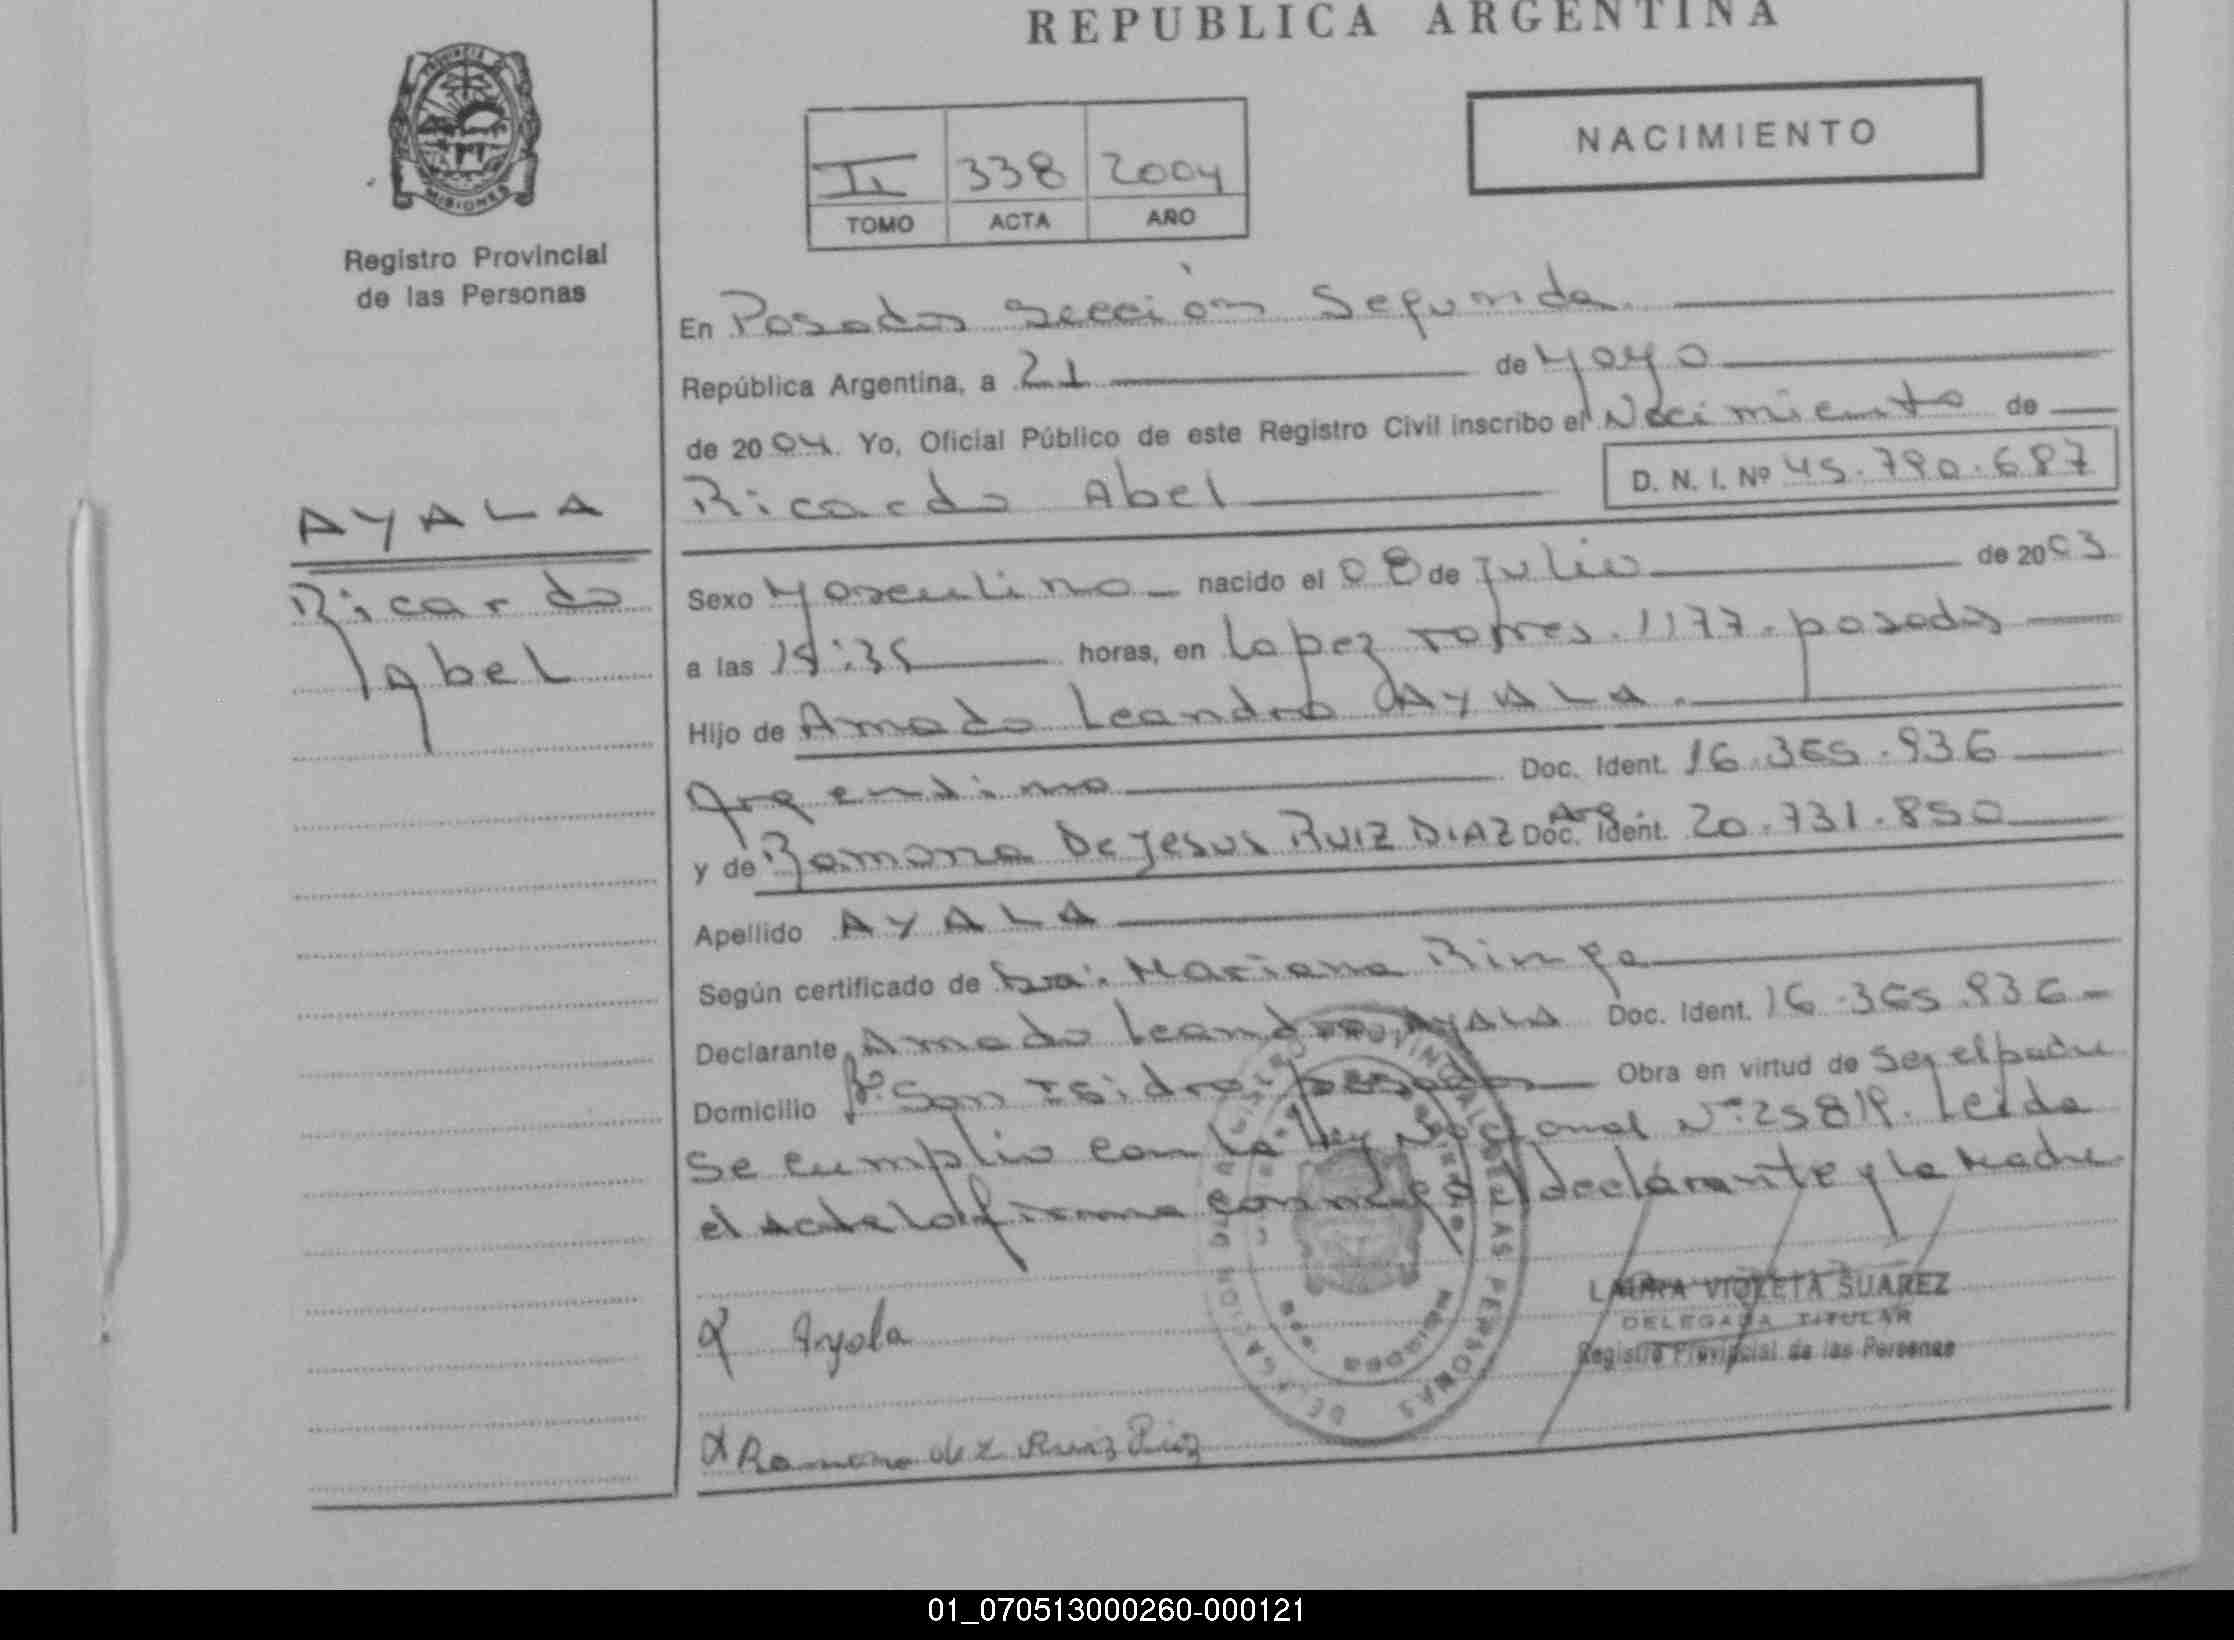 REPUBLICA ARGENTINA
PROVINCIA
MISIONES
Registro Provincial
de las Personas
II 338 2004
TOMO ACTA AÑO
NACIMIENTO
En Posadas Sección Segunda
República Argentina, a 21 de Mayo
de 2004. Yo, Oficial Público de este Registro Civil inscribo el Nacimiento de
Ricardo Abel D. N. I. Nº 45.790.687
AYALA
Ricardo
Abel
Sexo Masculino nacido el 08 de Julio de 2003
a las 15:35 horas, en Lopez Torres. 1177. posadas
Hijo de Amado Leandro AYALA.
Argentino Doc. Ident. 16.365.936
y de Ramona De Jesus RUIZ DIAZ Arg. Doc. Ident. 20.731.850
Apellido AYALA
Según certificado de Dra. Mariana Ringa
Declarante Amado Leandro AYALA Doc. Ident. 16.365.936
Domicilio Bº San Isidro posadas Obra en virtud de Ser el padre
Se cumplio con la ley Nacional Nº 25819. Leida
el acta la firma conmigo el declarante y la Madre
Ayala
Ramona de Ruiz Diaz
LAURA VIOLETA SUAREZ
DELEGADA TITULAR
Registro Provincial de las Personas
01_070513000260-000121